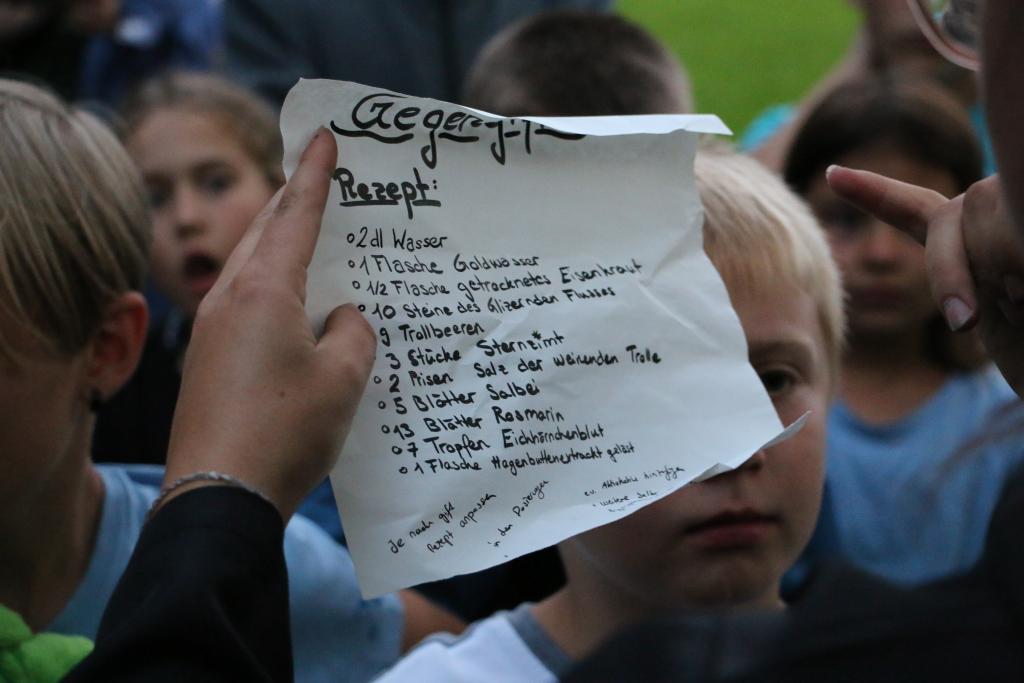 Gegengift
Rezept:
o 2 dl Wasser
o 1 Flasche Goldwasser
o 1/2 Flasche getrocknetes Eisenkraut
o 10 Steine des Glizernden Flusses
o 9 Trollbeeren
o 3 Stücke Sternzimt
o 2 Prisen Salz der weinenden Trolle
o 5 Blätter Salbei
o 13 Blätter Rosmarin
o 7 Tropfen Eichhörnchenblut
o 1 Flasche Hagenbuttenextrackt gelöst
Je nach gift
rezept anpassen
in den Dosierungen
ev. Aktivkohle hinzufügen